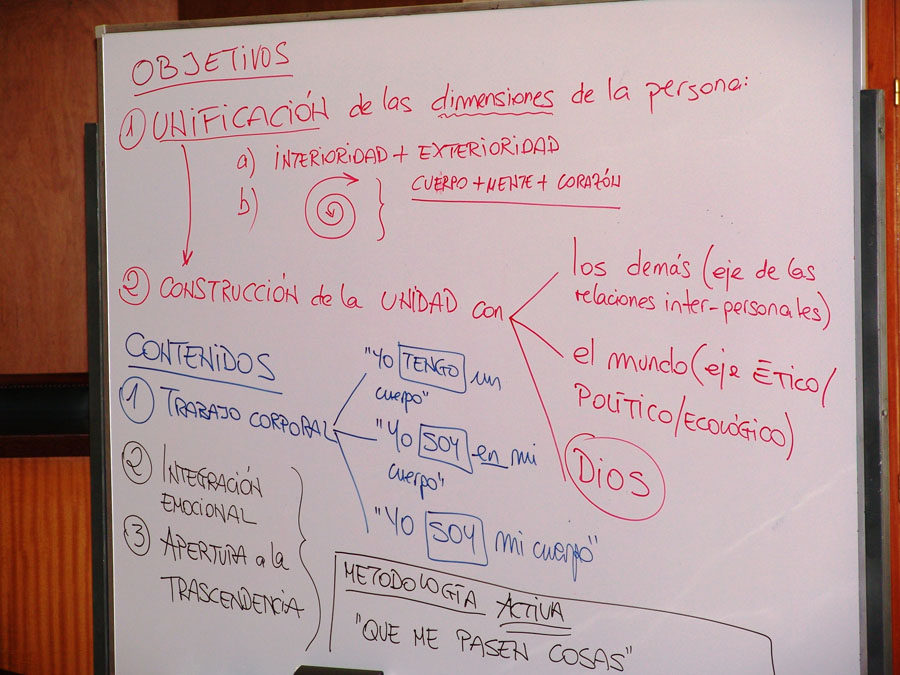 OBJETIVOS
① UNIFICACIÓN de las dimensiones de la persona:
a) INTERIORIDAD + EXTERIORIDAD
b) } CUERPO + MENTE + CORAZÓN
② CONSTRUCCIÓN de la UNIDAD con
los demás (eje de las
relaciones inter-personales)
el mundo (eje ÉTICO/
POLÍTICO/ECOLÓGICO)
DIOS
CONTENIDOS
① TRABAJO CORPORAL
"Yo TENGO un
cuerpo"
"Yo SOY en mi
cuerpo"
"Yo SOY mi cuerpo"
② INTEGRACIÓN
EMOCIONAL
③ APERTURA a la
TRASCENDENCIA
METODOLOGÍA ACTIVA
"QUE ME PASEN COSAS"